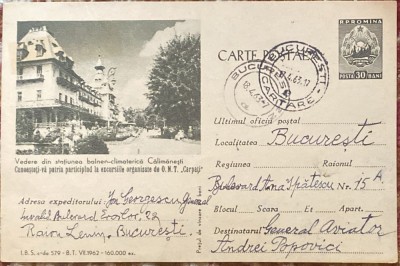 CARTE POSTALĂ
R.P.ROMINA
POSTA 30 BANI
BUCUREȘTI
CARTARE
Vedere din stațiunea balneo-climaterică Călimănești
Cunoașteți-vă patria participînd la excursiile organizate de O.N.T. „Carpați”
Adresa expeditorului: Ion Georgescu General
Invalid Bulevard Eroilor, 22
Raion Lenin, București.
I. B. S. c-da 579 - B. T. VII.1962 - 160.000 ex.
Prețul de vînzare 40 bani
Ultimul oficiul poștal
Localitatea București
Regiunea Raionul
Bulevard Ana Ipătescu Nr. 15 A
Blocul Scara Et. Apart.
Destinatarul General Aviator
Andrei Popovici